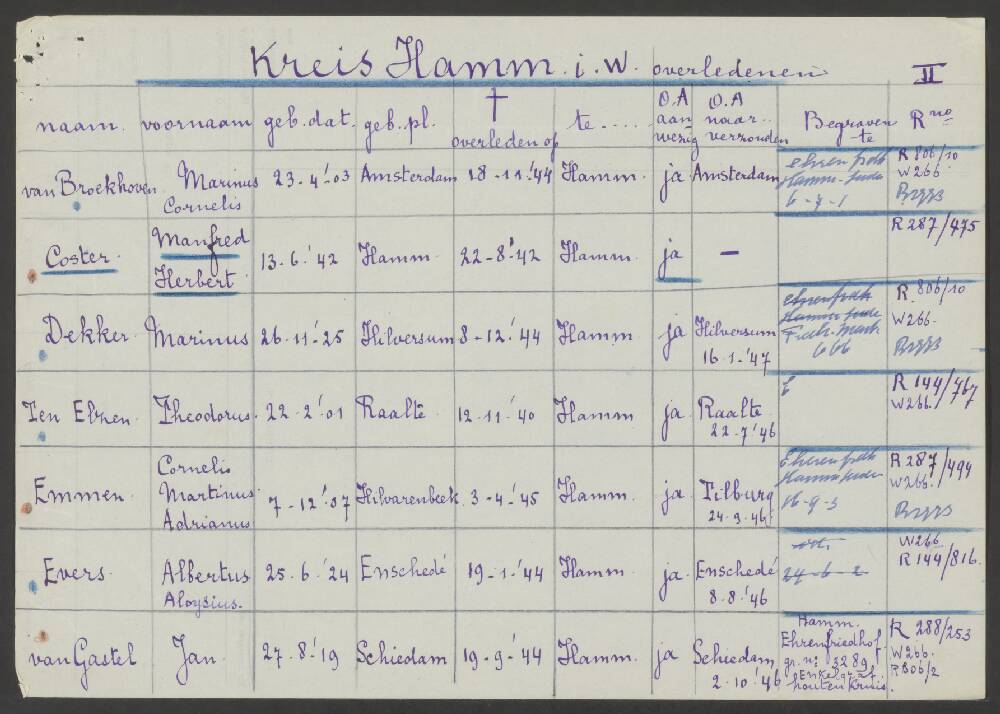 Kreis Hamm. i. W. overledenen II
naam. voornaam geb. dat. geb. pl. † overleden op te ..... O.A aan wezig O.A naar.. verzonden Begraven te R no
van Broekhoven Marinus Cornelis 23-4-'03 Amsterdam 18-11-'44 Hamm. ja Amsterdam Hamm 6-7-1 R 806/10 W266
Coster. Manfred Herbert. 13-6-'42 Hamm. 22-8-'42 Hamm. ja — R 287/475
Dekker Marinus 26-11-'25 Hilversum 8-12-'44 Hamm ja Hilversum 16-1-'47 Hamm 666 R 806/10 W266.
Ten Elzen Theodorus. 22-2-'01 Raalte 12-11-'40 Hamm ja Raalte 22-7-'46 R 144/767 W266.
Emmen. Cornelis Martinus Adrianus 7-12-'07 Hilvarenbeek 3-4-'45 Hamm. ja Tilburg 24-9-46 Hamm 16-9-3 R 287/494 W266.
Evers. Albertus Aloysius. 25-6-'24 Enschedé 19-1-'44 Hamm. ja Enschedé 8-8-'46 24-6-2 W266 R 144/816.
van Gastel Jan. 27-8-'19 Schiedam 19-9-'44 Hamm. ja Schiedam 2-10-'46 Hamm. Ehrenfriedhof gr. no 3289 houten kruis. R 288/253 W266. R806/2